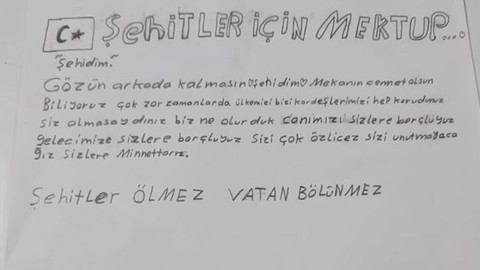 C★ ŞEhİTLER İÇİN MEKTUP...
"Şehidim."
Gözün arkada kalmasın♡şehidim♡Mekanın cennet olsun
Biliyoruz çok zor zamanlarda ülkemizi bizi kardeşlerimizi hep korudunuz
siz olmasaydınız biz ne olurduk canımızı sizlere borçluyuz
gelecimize sizlere borçluyuz sizi çok özlicez sizi unutmayaca
ğız sizlere Minnettarız.
Şehitler ÖLMEZ VATAN BÖLÜNMEZ